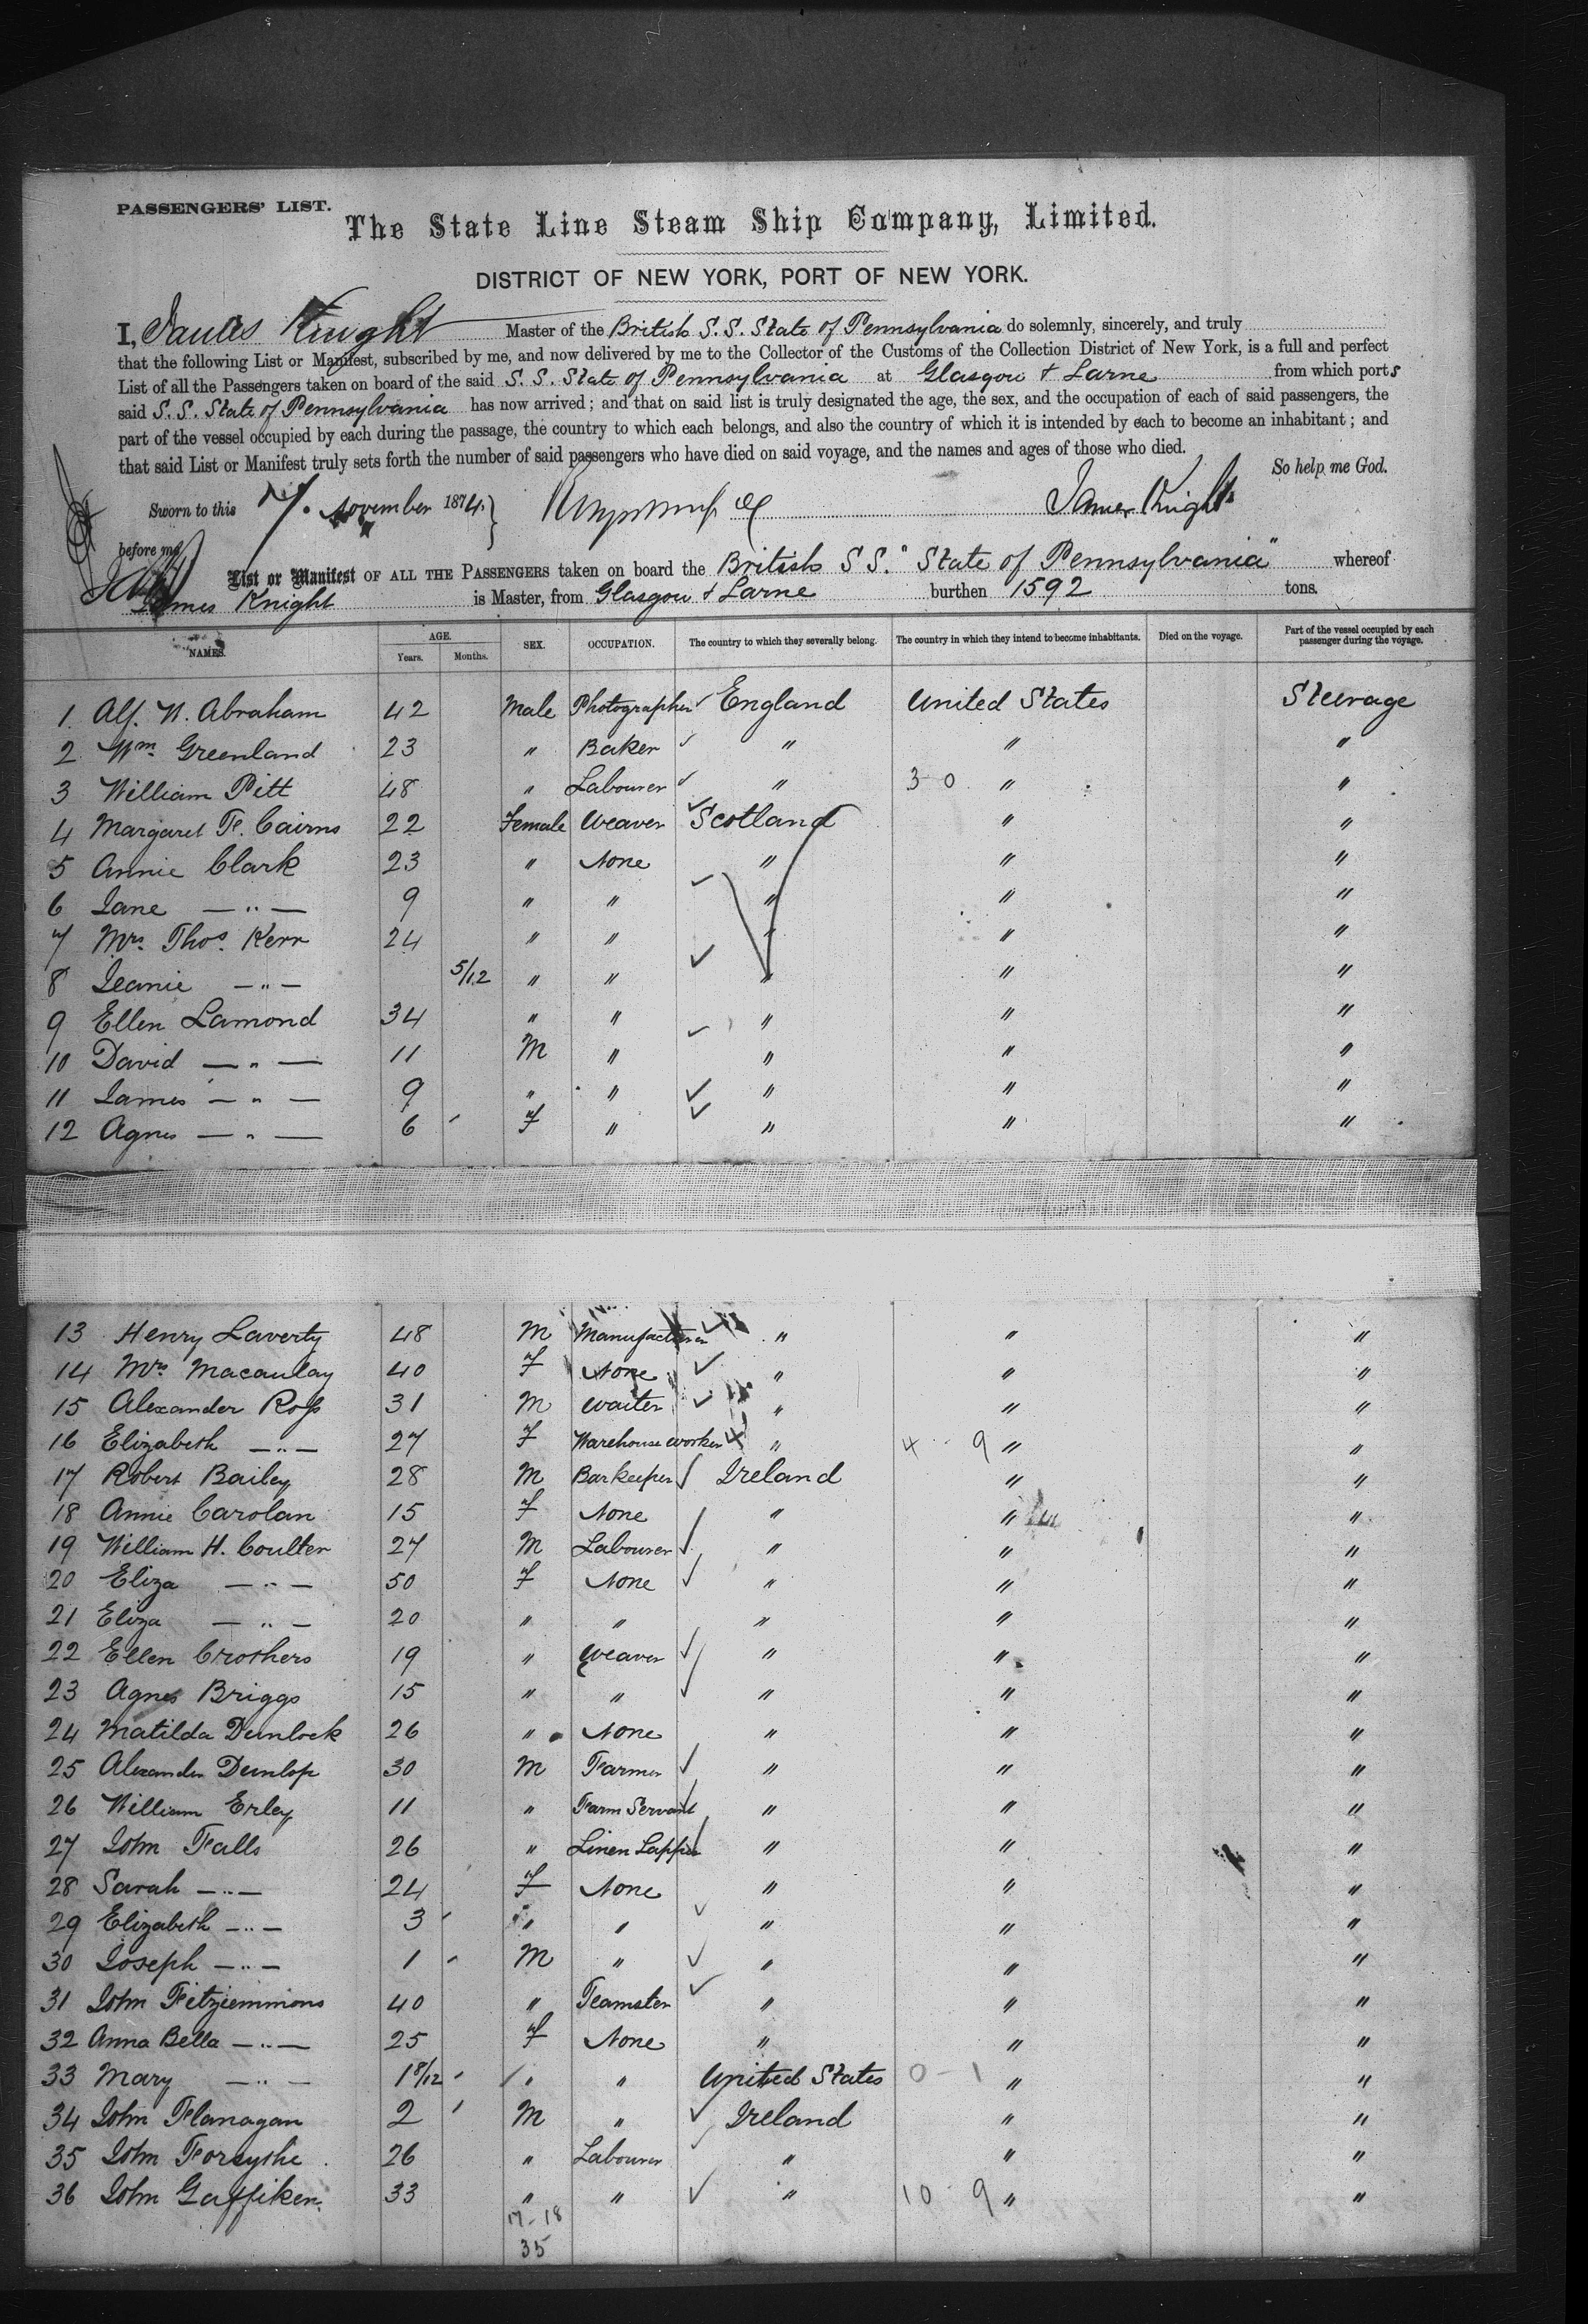 PASSENGERS' LIST.
The State Line Steam Ship Company, Limited.
DISTRICT OF NEW YORK, PORT OF NEW YORK.
I, James Knight Master of the British S.S. State of Pennsylvania do solemnly, sincerely, and truly
that the following List or Manifest, subscribed by me, and now delivered by me to the Collector of the Customs of the Collection District of New York, is a full and perfect
List of all the Passengers taken on board of the said S.S. State of Pennsylvania at Glasgow & Larne from which ports
said S.S. State of Pennsylvania has now arrived; and that on said list is truly designated the age, the sex, and the occupation of each of said passengers, the
part of the vessel occupied by each during the passage, the country to which each belongs, and also the country of which it is intended by each to become an inhabitant; and
that said List or Manifest truly sets forth the number of said passengers who have died on said voyage, and the names and ages of those who died.
So help me God.
Sworn to this 7. November 1874 James Knight
before me
List or Manifest OF ALL THE PASSENGERS taken on board the British SS. "State of Pennsylvania" whereof
James Knight is Master, from Glasgow & Larne burthen 1592 tons.
NAMES. AGE. Years. Months. SEX. OCCUPATION. The country to which they severally belong. The country in which they intend to become inhabitants. Died on the voyage. Part of the vessel occupied by each passenger during the voyage.
1. Alf. N. Abraham 42 Male Photographer England United States Steerage
2 Wm. Greenland 23 " Baker " " "
3 William Pitt 48 " Labourer " 3-0 " "
4 Margaret F. Cairns 22 Female Weaver Scotland " "
5 Annie Clark 23 " None " " "
6 Jane — " — 9 " " " " "
7 Mrs. Thos. Kerr 24 " " " " "
8 Jeanie — " — 5/12 " " " " "
9 Ellen Lamond 34 " " " " "
10 David — " — 11 M " " " "
11 James — " — 9 " " " " "
12 Agnes — " — 6 F " " " "
13 Henry Laverty 48 M Manufacturer " " "
14 Mrs Macaulay 40 F None " " "
15 Alexander Ross 31 M Waiter " " "
16 Elizabeth — " — 27 F Warehouse worker " 4 - 9 " "
17 Robert Bailey 28 M Barkeeper Ireland " "
18 Annie Carolan 15 F None " " "
19 William H. Coulter 27 M Labourer " " "
20 Eliza — " — 50 F None " " "
21 Eliza — " — 20 " " " " "
22 Ellen Crothers 19 " Weaver " " "
23 Agnes Briggs 15 " " " " "
24 Matilda Dunlock 26 " None " " "
25 Alexander Dunlop 30 M Farmer " " "
26 William Erley 11 " Farm Servant " " "
27 John Falls 26 " Linen Lapper " " "
28 Sarah — " — 24 F None " " "
29 Elizabeth — " — 3 " " " " "
30 Joseph — " — 1 M " " " "
31 John Fitzsimmons 40 " Teamster " " "
32 Anna Bella — " — 25 F None " " "
33 Mary — " — 1 8/12 " " United States 0-1 " "
34 John Flanagan 2 M " Ireland " "
35 John Forsythe 26 " Labourer " " "
36 John Gaffiken 33 " " " 10 - 9 " "
17-18
35